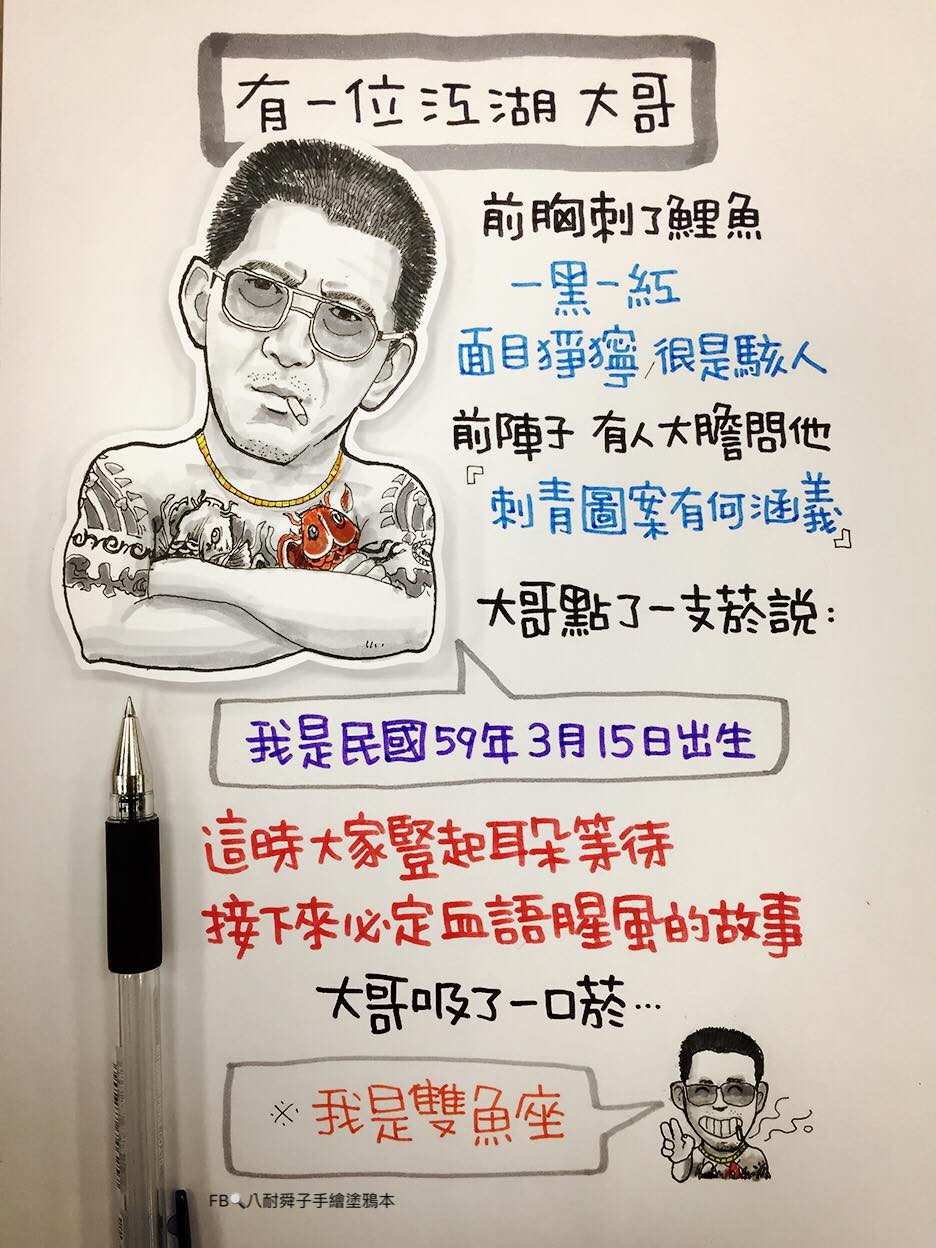 有一位江湖大哥
前胸刺了鯉魚
一黑一紅
面目猙獰,很是駭人
前陣子 有人大膽問他
『刺青圖案有何涵義』
大哥點了一支菸説:
我是民國59年3月15日出生
這時大家豎起耳朵等待
接下來必定血語腥風的故事
大哥吸了一口菸…
※我是雙魚座
FB🔍八耐舜子手繪塗鴉本